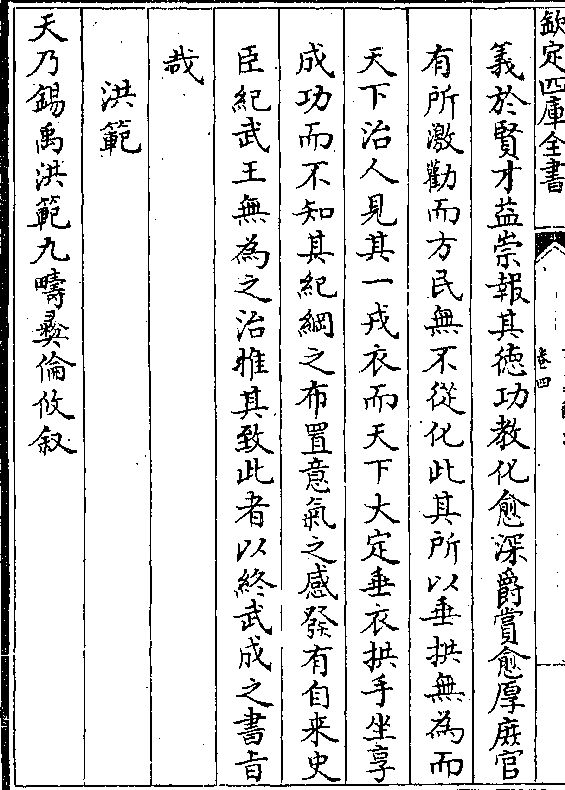 欽定四庫全書
卷四
義於賢才益崇報其德功教化愈深爵賞愈厚庶官
有所激勸而方民無不從化此其所以垂拱無為而
天下治人見其一戎衣而天下大定垂衣拱手坐享
成功而不知其紀綱之布置意氣之感發有自来史
臣紀武王無為之治惟其致此者以終武成之書旨
哉
洪範
天乃錫禹洪範九疇彞倫攸叙